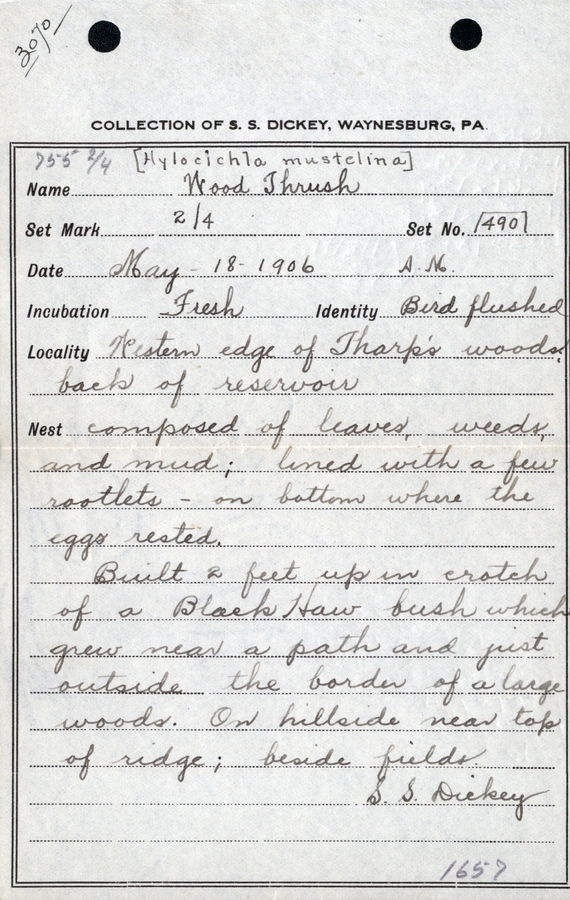 3070
COLLECTION OF S. S. DICKEY, WAYNESBURG, PA.
755 2/4 [Hylocichla mustelina]
Name Wood Thrush
Set Mark 2/4 Set No. [490]
Date May - 18 - 1906 A.M.
Incubation Fresh Identity Bird flushed
Locality Western edge of Tharp's woods;
back of reservoir
Nest composed of leaves, weeds,
and mud; lined with a few
rootlets - on bottom where the
eggs rested.
Built 2 feet up in crotch
of a Black Haw bush which
grew near a path and just
outside the border of a large
woods. On hillside near top
of ridge; beside fields.
S. S. Dickey
1657